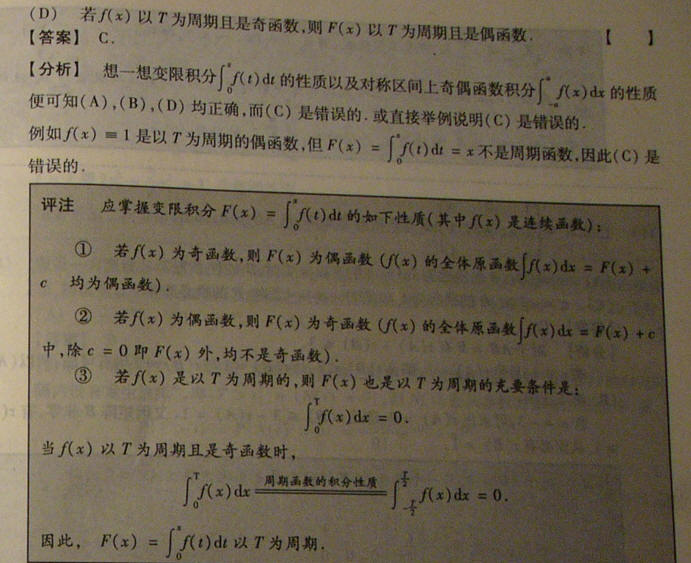 (D) 若f(x) 以 T 为周期且是奇函数,则 F(x) 以 T 为周期且是偶函数. 【 】
【答案】 C.
【分析】 想一想变限积分∫₀ˣf(t)dt 的性质以及对称区间上奇偶函数积分∫₋ₐᵃ f(x)dx 的性质
便可知(A),(B),(D) 均正确,而(C) 是错误的. 或直接举例说明(C) 是错误的.
例如f(x) ≡ 1 是以 T 为周期的偶函数,但 F(x) = ∫₀ˣf(t)dt = x 不是周期函数,因此(C) 是
错误的.
评注 应掌握变限积分 F(x) = ∫₀ˣf(t)dt 的如下性质(其中f(x) 是连续函数):
① 若f(x) 为奇函数,则 F(x) 为偶函数 (f(x) 的全体原函数∫f(x)dx = F(x) +
c 均为偶函数).
② 若f(x) 为偶函数,则 F(x) 为奇函数 (f(x) 的全体原函数∫f(x)dx = F(x) + c
中,除 c = 0 即 F(x) 外,均不是奇函数).
③ 若f(x) 是以 T 为周期的,则 F(x) 也是以 T 为周期的充要条件是:
∫₀ᵀf(x)dx = 0.
当f(x) 以 T 为周期且是奇函数时,
∫₀ᵀf(x)dx ==周期函数的积分性质== ∫_{-T/2}^{T/2} f(x)dx = 0.
因此, F(x) = ∫₀ˣf(t)dt 以 T 为周期.